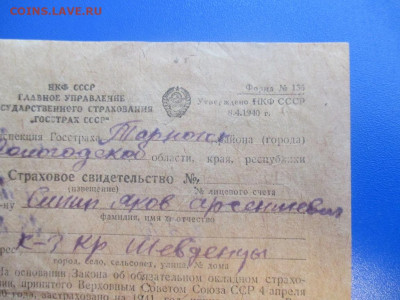 COINS.LAVE.RU
НКФ СССР
ГЛАВНОЕ УПРАВЛЕНИЕ
СУДАРСТВЕННОГО СТРАХОВАНИЯ
„ГОССТРАХ СССР"
Форма №
Утверждено НКФ СССР
1940 г.
спекция Госстраха Тарног района (города)
Вологодской области, края, республики
Страховое свидетельство №
(извещение) № лицевого счета
ну Силин Яков Арсентьевич
фамилия, имя и отчество
рес К-З Кр. Шевденцы
город, село, сельсовет, улица, № дома
На основании Закона об обязательном окладном страхо-
ии, принятого Верховным Советом Союза ССР 4 апреля
застраховано на 1941